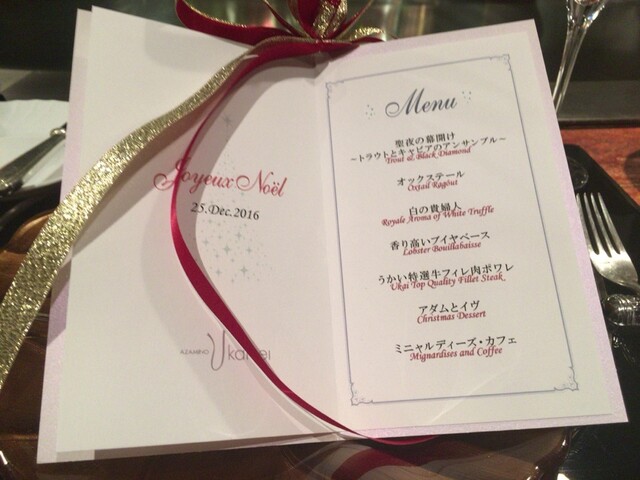 Joyeux Noël
25.Dec.2016
AZAMINO
Menu
聖夜の幕開け
~トラウトとキャビアのアンサンブル~
Trout & Black Diamond
オックステール
Oxtail Ragout
白の貴婦人
Royale Aroma of White Truffle
香り高いブイヤベース
Lobster Bouillabaisse
うかい特選牛フィレ肉ポワレ
Ukai Top Quality Fillet Steak
アダムとイヴ
Christmas Dessert
ミニャルディーズ・カフェ
Mignardises and Coffee